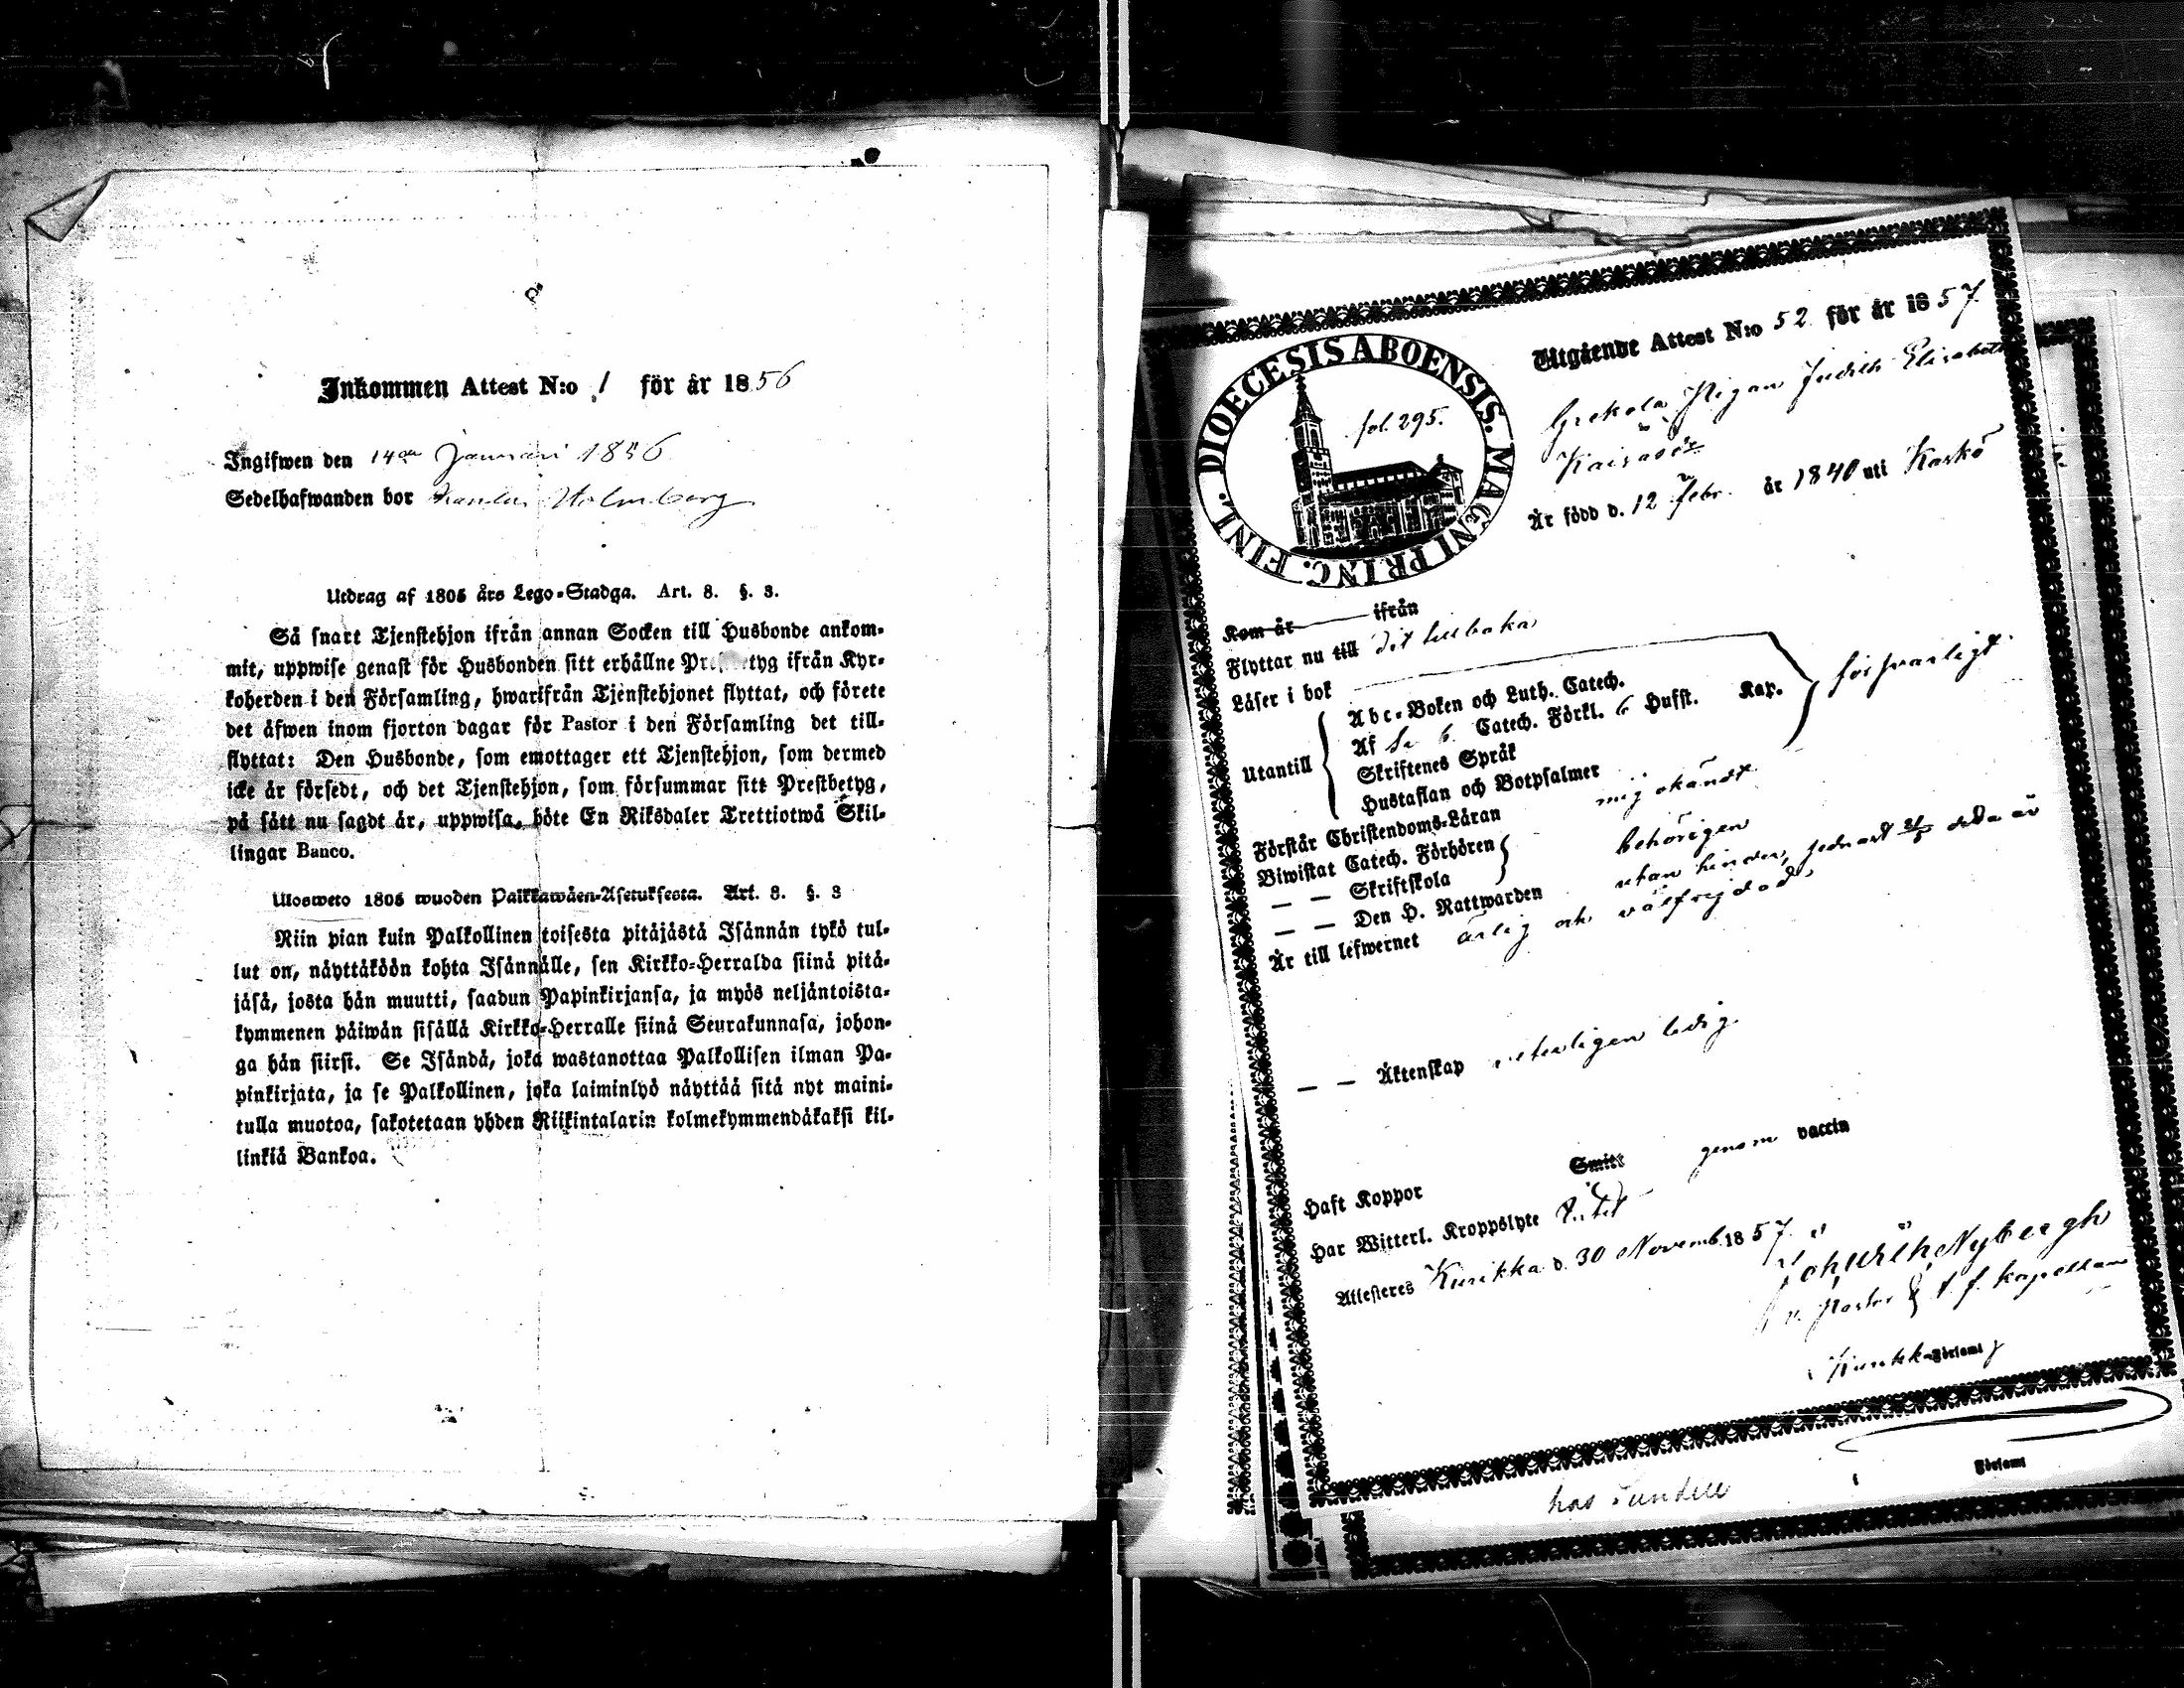 Inkommen Attest N:o 1 för år 1856
Ingifwen den 14de Januari 1856
Sedelhafwanden bor Holmberg
Utdrag af 1805 års Lego-Stadga. Art. 8. §. 3.
Så snart Tjenstehjon ifrån annan Socken till Husbonde ankom-
mit, uppwise genast för Husbonden sitt erhållne ifrån Kyr-
koherden i den Församling, hwarifrån Tjenstehjonet flyttat, och förete
det äfwen inom fjorton dagar för Pastor i den Församling det till-
flyttat: Den Husbonde, som emottager ett Tjenstehjon, som dermed
icke är försedt, och det Tjenstehjon, som försummar sitt Prestbetyg,
på sätt nu sagdt är, uppwisa, böte En Riksdaler Trettiotwå Skil-
lingar Banco.
Ulosweto 1805 wuoden Palkkawäen-Asetuksesta. Art. 8. §. 3
Niin pian kuin Palkollinen toisesta pitäjästä Isännän tykö tul-
lut on, näyttäköön kohta Isännälle, sen Kirkko-Herralda siinä pitä-
jäsä, josta hän muutti, saadun Papinkirjansa, ja myös neljäntoista-
kymmenen päiwän sisällä Kirkko-Herralle siinä Seurakunnasa, johon-
ga hän siirsi. Se Isändä, joka wastanottaa Palkollisen ilman Pa-
pinkirjata, ja se Palkollinen, joka laiminlyö näyttää sitä nyt maini-
tulla muotoa, sakotetaan yhden Riikintalarin kolmekymmendäkaksi kil-
linkiä Bankoa.
DIOECESIS ABOENSIS. MAGNI PRINC. FINL.
fol. 295.
Utgående Attest N:o 52 för år 1857
Pigan Judith Elisabeth
Är född d. 12 Febr. år 1840 uti Kaskö
Kom år ifrån
Flyttar nu till dit tillbaka
Läser i bok
Utantill
Abc-Boken och Luth. Catech.
Af 6 Catech. Förkl. 6 Hufst. Kap.
försvarligt
Skriftenes Språk
Hustaflan och Botpsalmer
Förstår Christendoms-Läran mig okändt
Biwistat Catech. Förhören
behörigen
— — Skriftskola
— — Den H. Nattwarden utan hinder, sednast detta år
Är till lefwernet ärlig och välfrejdad,
— — Äktenskap veterligen ledig
Haft Koppor Smitt genom vaccin
Har Witterl. Kroppslyte
Attesteras Kurikka d. 30 Novemb. 1857.
Joh Wilh Nybergh
v. Pastor & t. f. kapellan
i Kurikka Förfamt
Förfamt
hos Sundell